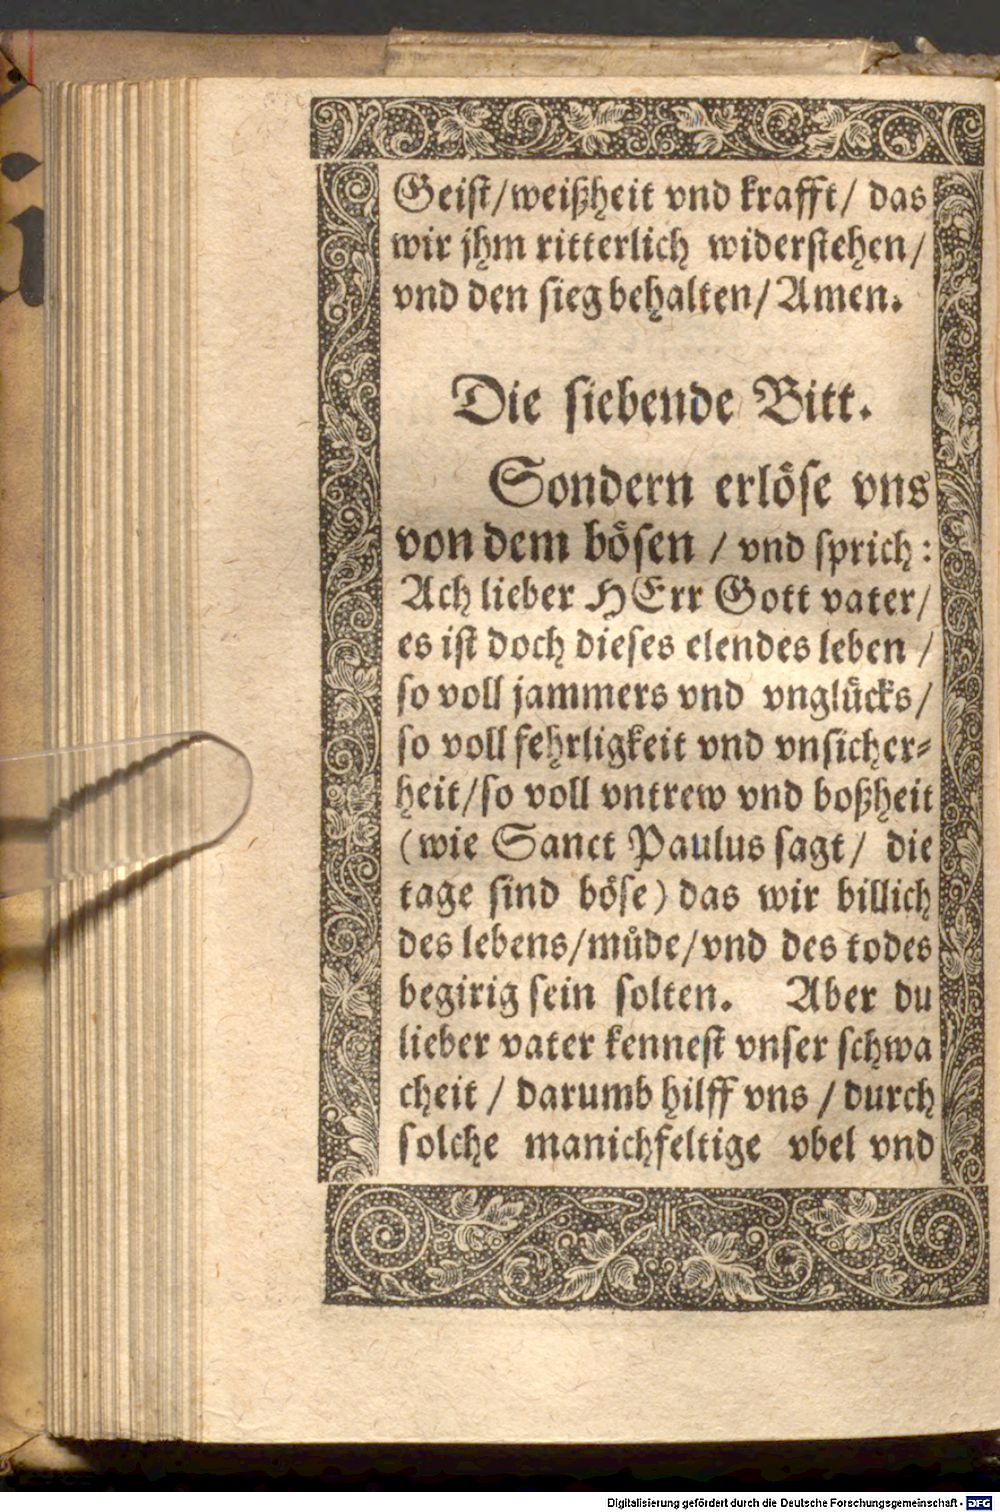 Geist/weißheit vnd krafft/ das
wir jhm ritterlich widerstehen/
vnd den sieg behalten/ Amen.
Die siebende Bitt.
Sondern erlöse vns
von dem bösen / vnd sprich:
Ach lieber HErr Gott vater/
es ist doch dieses elendes leben /
so voll jammers vnd vnglücks/
so voll fehrligkeit vnd vnsicher-
heit/so voll vntrew vnd boßheit
(wie Sanct Paulus sagt/ die
tage sind böse) das wir billich
des lebens/müde/vnd des todes
begirig sein solten. Aber du
lieber vater kennest vnser schwa
cheit / darumb hilff vns / durch
solche manichfeltige vbel vnd
Digitalisierung gefördert durch die Deutsche Forschungsgemeinschaft - DFG